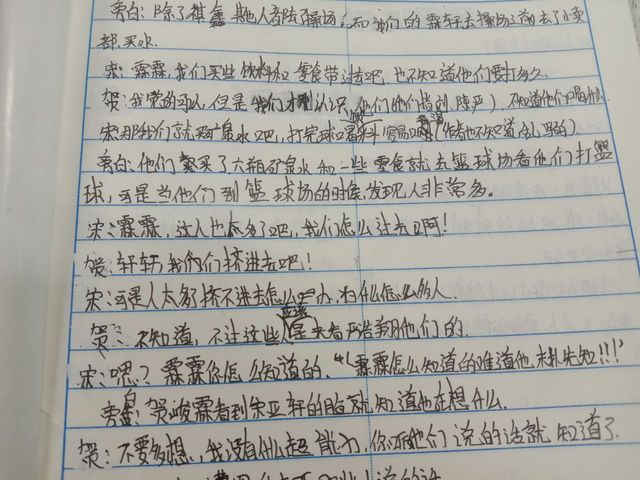 旁白:除了祺鑫其他人者陆操场,而我们的霖轩去操场了前去了小卖
部买水
宋:霖霖我们买些饮料和零食带过去吧,也不知道他们要打多久
贺:我觉的可以但是我们才刚认识,他们(他们指刘、陈、严)不知道他们
宋:那我们就买矿泉水吧,打完球口喝
旁白:他们买了六瓶矿泉水和一些零食就去篮球场看他们打篮
球,可是当他们到篮球场的时候,发现人非常多。
宋:霖霖,这人也太多了吧,我们怎么过去啊!
贺:轩轩我们们挤进去吧!
宋:可是人太多挤不进去怎么办,为什么怎么多人.
贺:不知道,不过这些人应该是来看严浩翔他们的.
宋:嗯?霖霖你怎么知道的."(霖霖怎么知道的谁道他未扑先知!!!"
旁白:贺峻霖看到宋亚轩的脸就知道他在想什么.
贺:不要多想,我没有什么超能力,你听他们说的话就知道了.